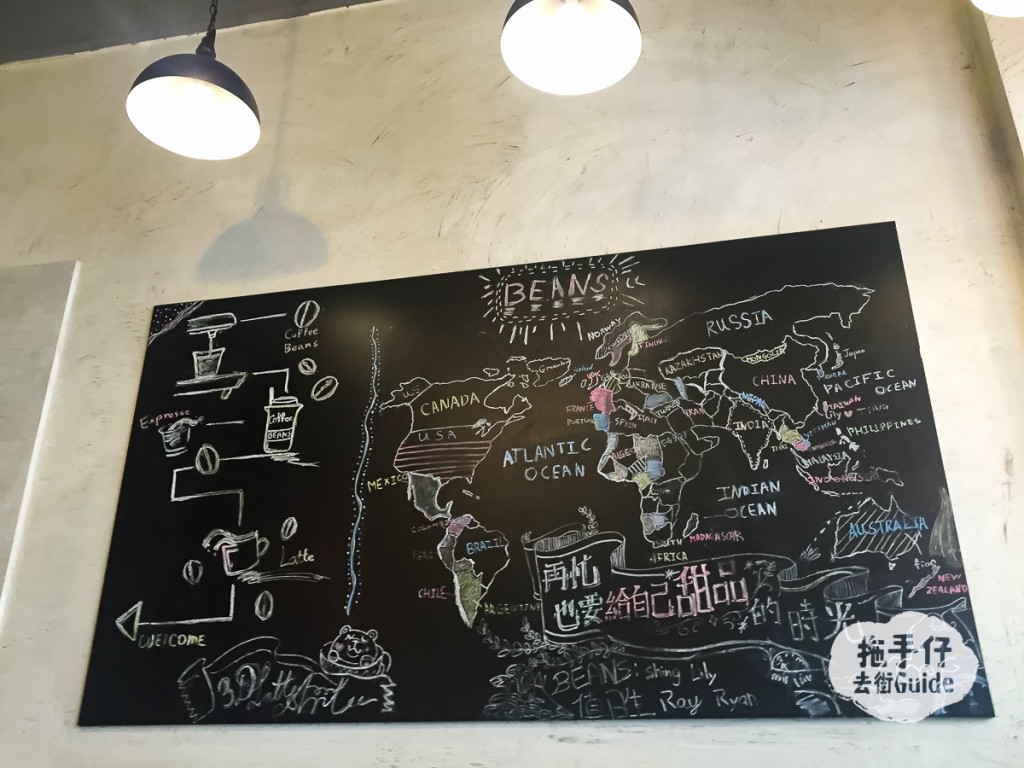 BEANS
Coffee
Beans
Espresso
Coffee
BEANS
Latte
WELCOME
3D Latte
NORWAY
RUSSIA
Greenland
Iceland
UK
UKRAINE
KAZAKHSTAN
MONGOLIA
Japan
Korea
CANADA
U.S.
USA
FRANCE
SPAIN
ITALY
IRAN
CHINA
NEPAL
PACIFIC
OCEAN
TAIWAN
INDIA
PHILIPPINES
ATLANTIC
OCEAN
MEXICO
MALAYSIA
INDONESIA
INDIAN
OCEAN
BRAZIL
PERU
CHILE
ARGENTINA
SOUTH
AFRICA
MADAGASCAR
AUSTRALIA
NEW
ZEALAND
再忙
也要給自己甜品的時光
BEANS: Shing Lily
值日生 Ray Ryan
拖手仔
去街Guide